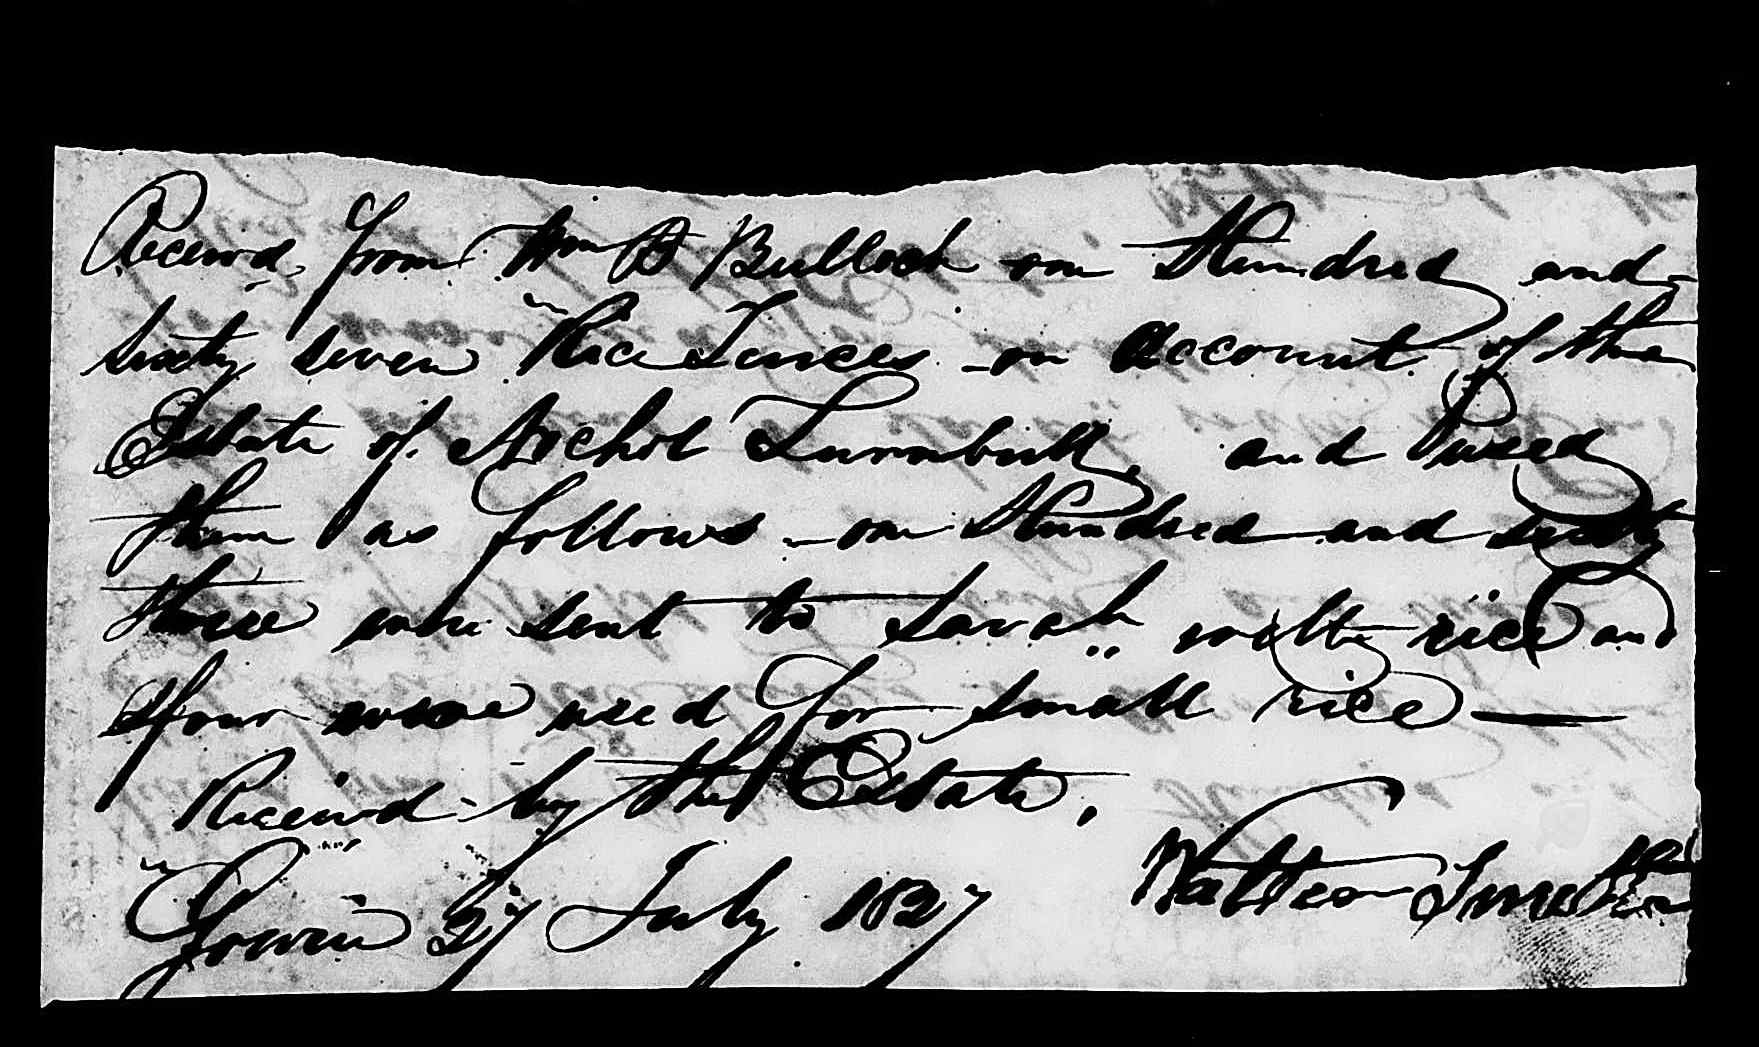 Receivd, from Wm B Bulloch one Hundred and
sixty seven Rice Tirces on account of the
Estate of Nichol Turnbull, and I used
them as follows one Hundred and sixty
three were sent to Savah.. with rice and
four were used for small rice —
Receivd by the Estate.
27 July 1827 Walter